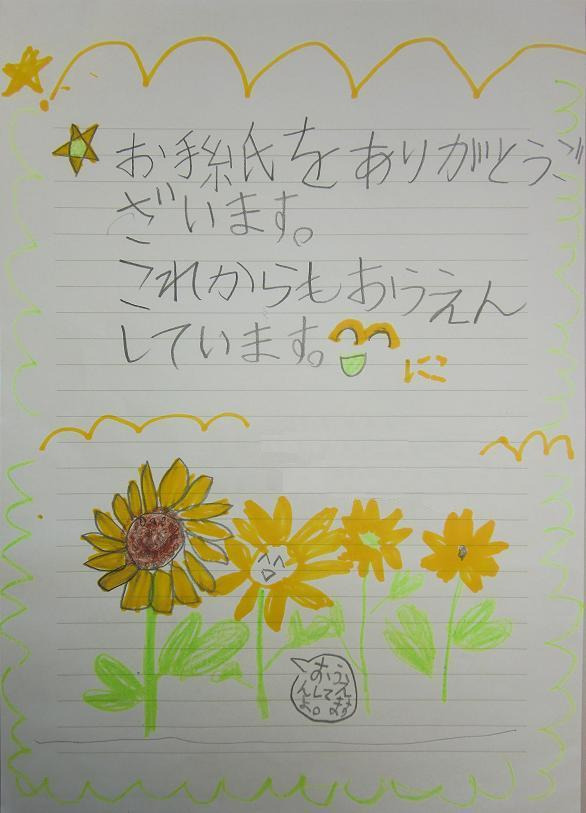 お手紙をありがとうご
ざいます。
これからもおうえん
しています。
にこ
おうえ
んしてます
よ。